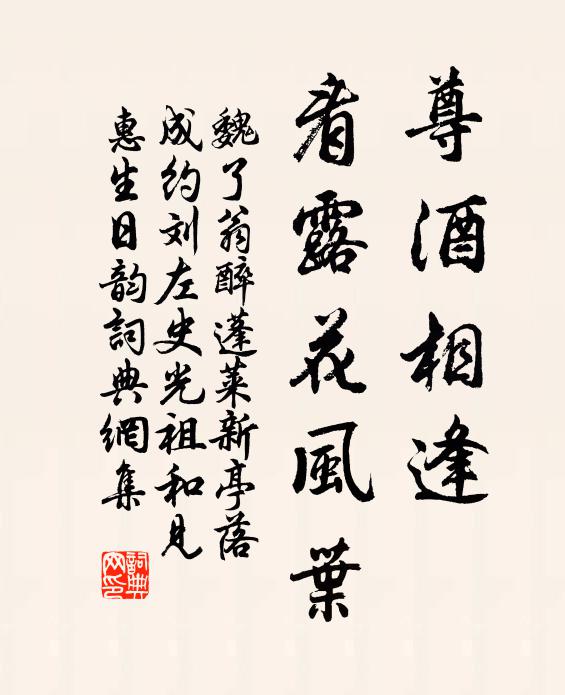 尊酒相逢
看露花風葉
魏了翁醉蓬萊新亭落
成約刘左史光祖和見
惠生日韵詞典網集
詞典網印